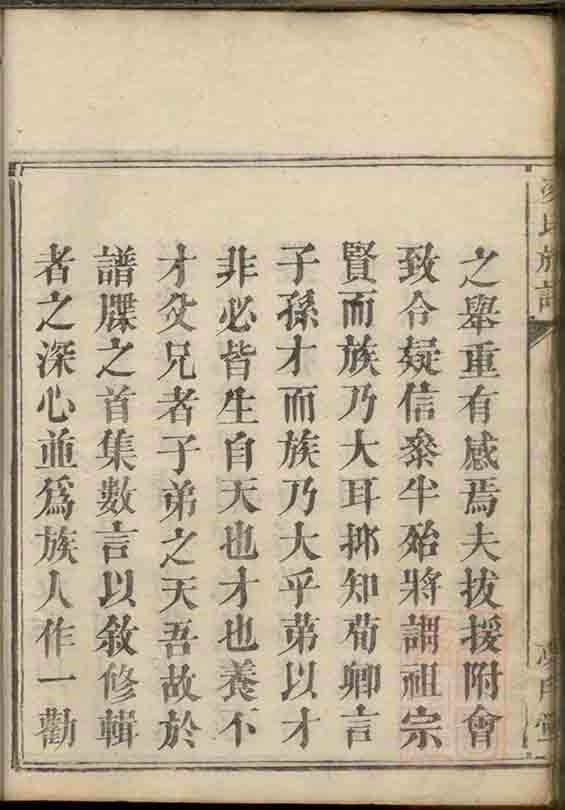 之舉重有感焉夫拔援附會
致令疑信叅半殆將謂祖宗
賢而族乃大耳抑知荀卿言
子孫才而族乃大乎苐以才
非必皆生自天也才也養不
才父兄者子弟之天吾故於
譜牒之首集數言以敘修輯
者之深心並爲族人作一勸